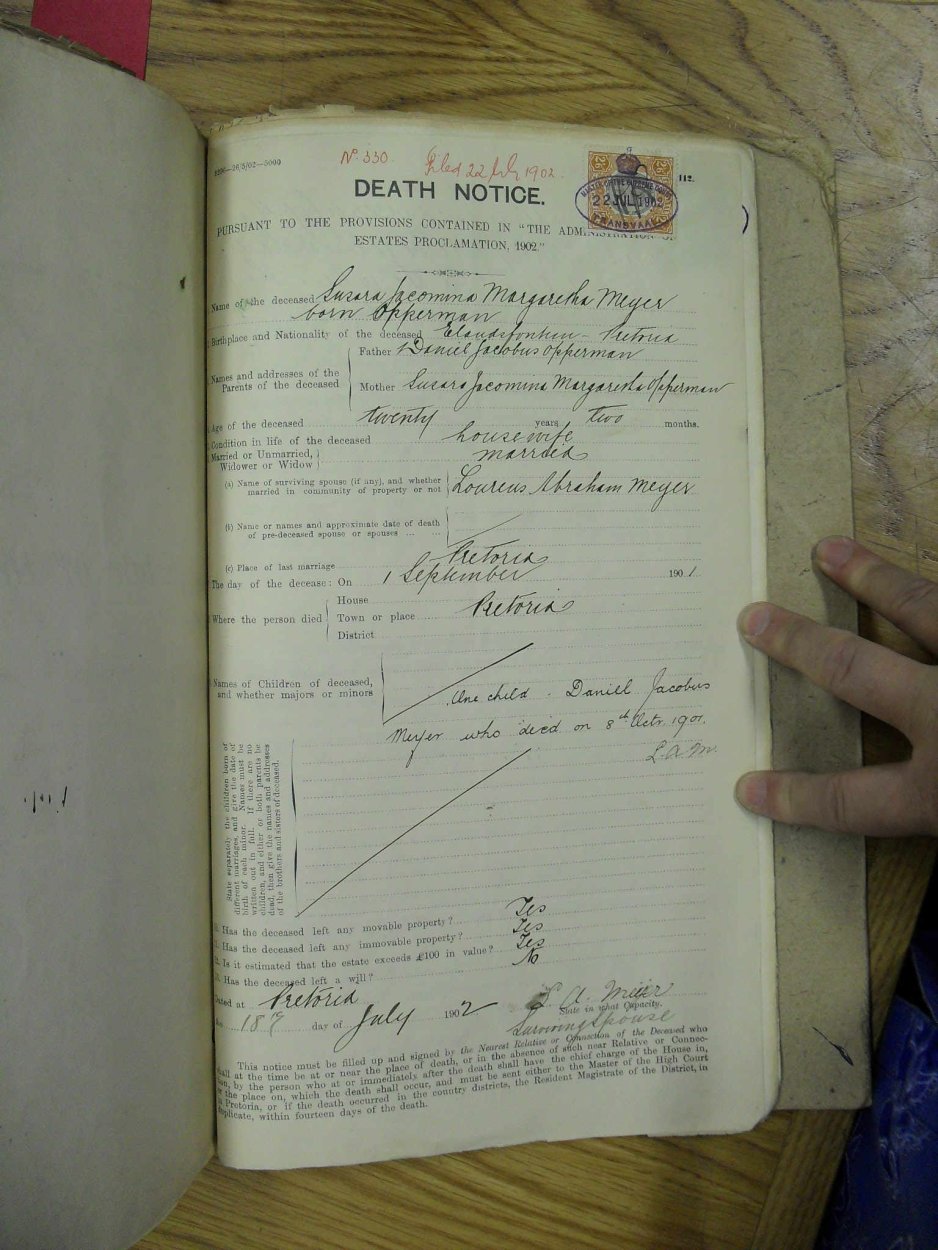 —26/5/02—5000
No. 330. Filed 22 July 1902.
112.
DEATH NOTICE.
22 JUL 1902
TRANSVAAL
PURSUANT TO THE PROVISIONS CONTAINED IN "THE ADMINISTRATION OF
ESTATES PROCLAMATION, 1902."
Name of the deceased Susara Jacomina Margaretha Meyer
born Opperman
Birthplace and Nationality of the deceased Elandsfontein - Pretoria
Names and addresses of the Parents of the deceased
Father Daniel Jacobus Opperman
Mother Susara Jacomina Margaretha Opperman
Age of the deceased twenty years two months.
Condition in life of the deceased housewife
Married or Unmarried, Widower or Widow married
(a) Name of surviving spouse (if any), and whether
married in community of property or not
Lourens Abraham Meyer
(b) Name or names and approximate date of death
of pre-deceased spouse or spouses ... ...
(c) Place of last marriage Pretoria
The day of the decease: On 1 September 1901
Where the person died
House
Town or place Pretoria
District
Names of Children of deceased,
and whether majors or minors
One child - Daniel Jacobus
Meyer who died on 8th Octr. 1901.
L.A.M.
State separately the children born of
different marriages, and give the date of
birth of each minor. Names must be
written out in full. If there are no
children, and either or both parents be
dead, then give the names and addresses
of the brothers and sisters of deceased.
Has the deceased left any movable property? Yes
Has the deceased left any immovable property? Yes
Is it estimated that the estate exceeds £100 in value? Yes
Has the deceased left a will? No
Dated at Pretoria
18 day of July 1902
L. A. Meijer
State in what Capacity.
Surviving Spouse
This notice must be filled up and signed by the Nearest Relative or Connection of the Deceased who
shall at the time be at or near the place of death, or in the absence of such near Relative or Connec-
tion, by the person who at or immediately after the death shall have the chief charge of the House in,
or the place on, which the death shall occur, and must be sent either to the Master of the High Court
in Pretoria, or if the death occurred in the country districts, the Resident Magistrate of the District, in
duplicate, within fourteen days of the death.